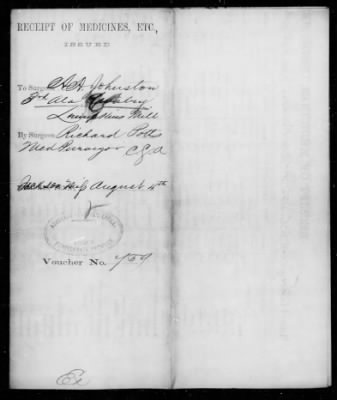 RECEIPT OF MEDICINES, ETC.,
ISSUED
To Surg. A. A. Johnston
3rd Ala Cavalry
Lumpkins Mill
By Surgeon Richard Potts
Med Purveyor C S A
Jackson Miss August 4th
Voucher No. 759